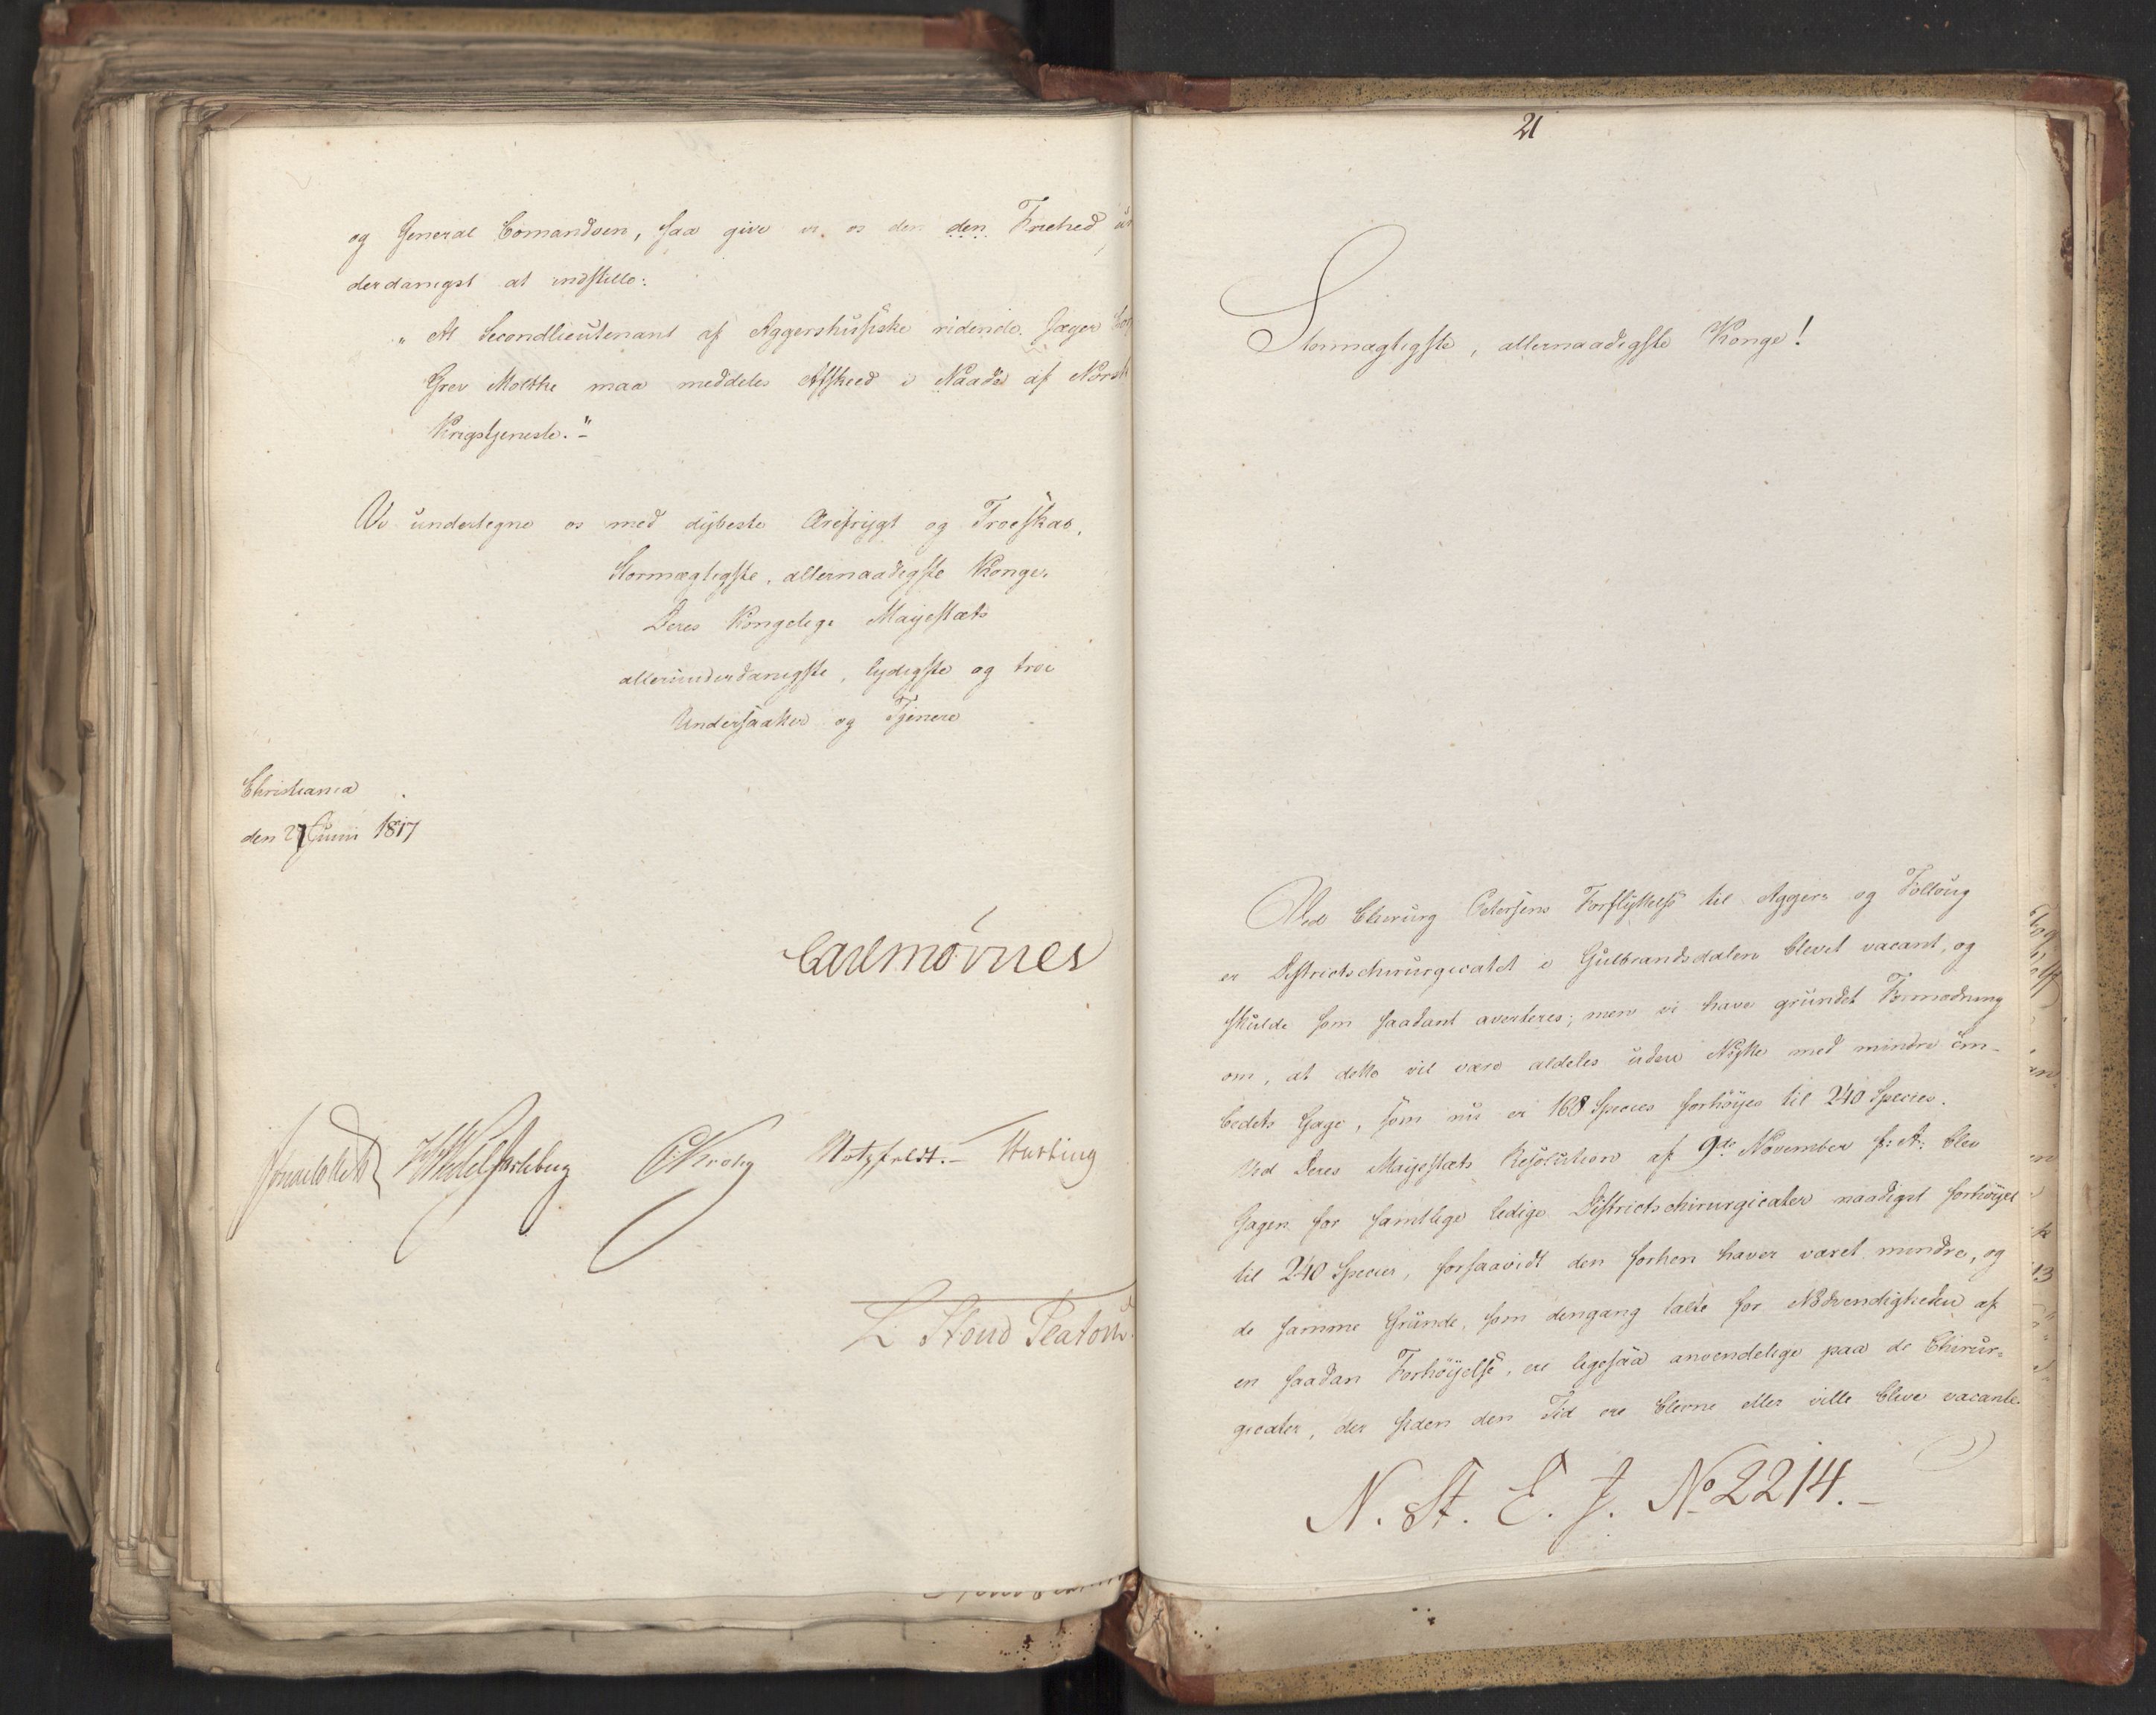 og General Comandoen, saa give vi os den den Friehed un
derdanigst at indstille:
„ At Secondlieutenant af Aggershusiske ridende Jæger Cor
Grev Moltke maa meddeles Afskeed i Naade af Norsk
Krigstjeneste."-
Vi undertegne os med dybeste Ærefrygt og Troeskab,
Stormægtigste, allernaadigste Konge.
Deres Kongelige Majestæts
allerunderdanigste, lydigste og troe
Undersaatter og Tjenere
Christiania
den 27 Juni 1817
Carl Mörner
Sommerhielm HWedelJarlsberg CKrohg Motzfeldt.- Hesting
L Stoud Platou
21
Stormægtigste, allernaadigste Konge!
Ved Chirurg Petersens Forflyttelse til Aggers og Folloug
er Districtschirurgicatet i Gulbrandsdalen blevet vacant, og
skulde som saadant averteres; men vi have grundet Formodning
om, at dette vil være aldeles uden Nytte med mindre Em-
bedets Gage, som nu er 168 Species forhöyes til 240 Species.
Ved Deres Majestæts Resolution af 9de November f: A: blev
Gagen for samtlige ledige Districtschirurgicater naadigst forhöyet
til 240 Species, forsaavidt den forhen haver været mindre, og
de samme Grunde, som dengang talte for Nödvendigheden af
en saadan Forhöyelse, ere ligesaa anvendelige paa de Chirur=
gicater, der siden den Tid ere blevne eller ville blive vacante.
N. St. E. J. No 2214.-